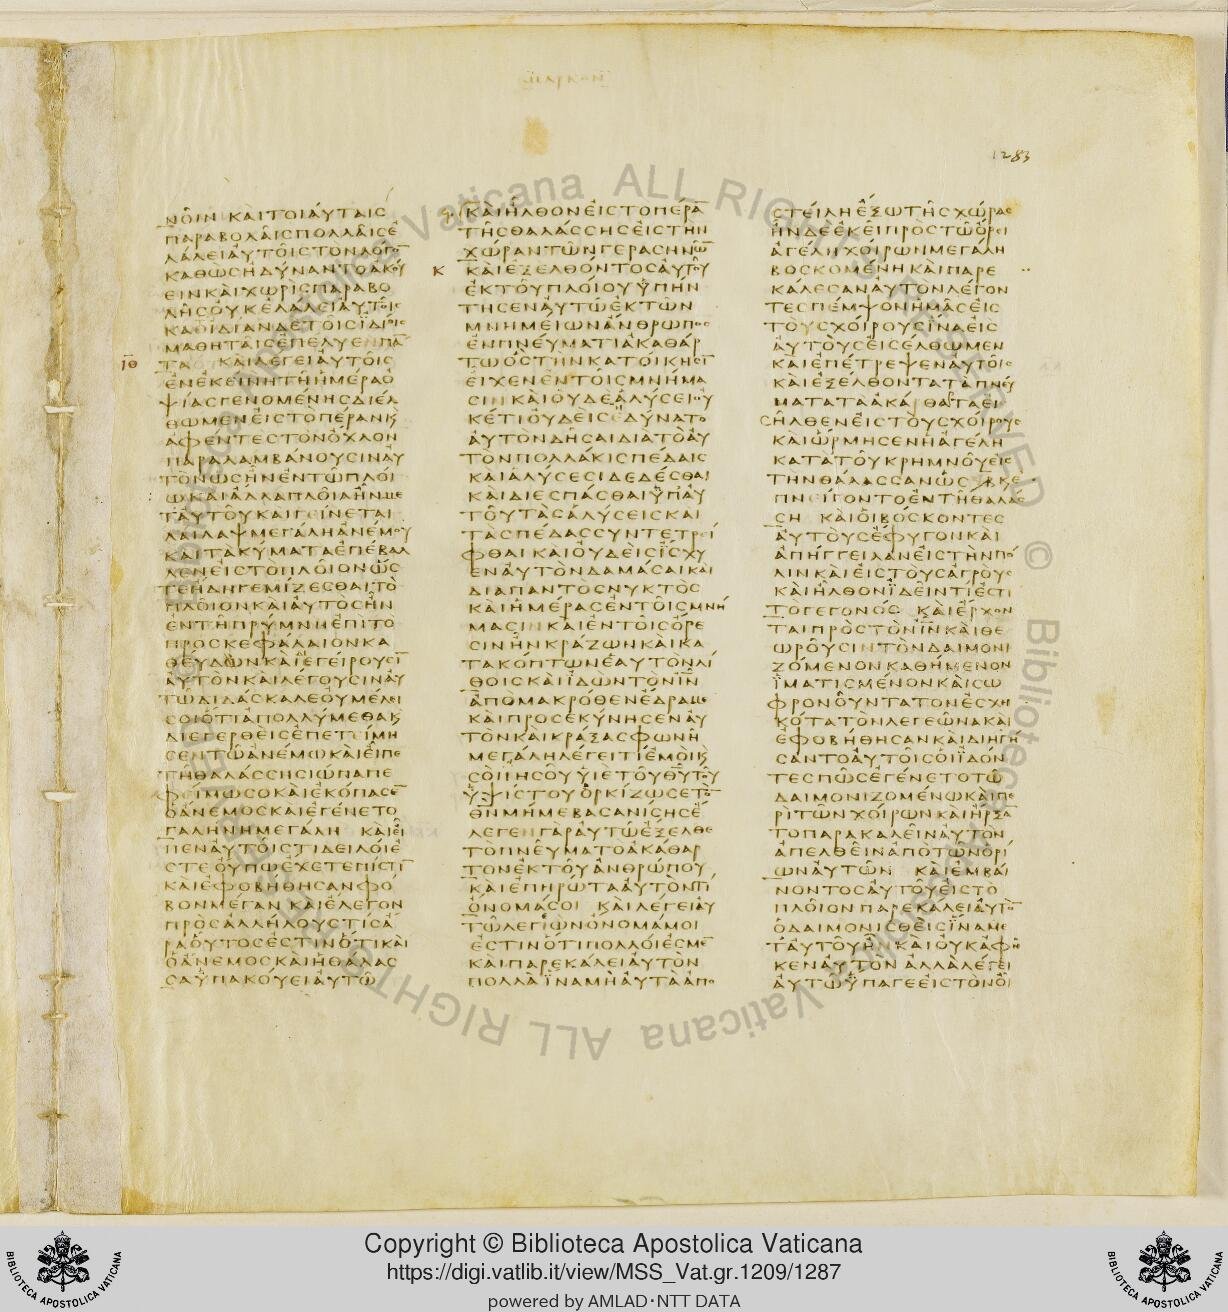 ΜΑΡΚΟΝ
1283
ΝΟΙΝ ΚΑΙ ΤΟΙΑΥΤΑΙΣ
ΠΑΡΑΒΟΛΑΙΣ ΠΟΛΛΑΙΣ Ε
ΛΑΛΕΙ ΑΥΤΟΙΣ ΤΟΝ ΛΟΓΟ̅
ΚΑΘΩΣ ΗΔΥΝΑΝΤΟ ΑΚΟΥ
ΕΙΝ ΚΑΙ ΧΩΡΙΣ ΠΑΡΑΒΟ
ΛΗΣ ΟΥΚ ΕΛΑΛΕΙ ΑΥΤΟΙΣ
ΚΑΘ ΙΔΙΑΝ ΔΕ ΤΟΙΣ ΙΔΙΟΙΣ
ΜΑΘΗΤΑΙΣ ΕΠΕΛΥΕΝ ΠΑ̅
ΙΘ
ΤΑ ΚΑΙ ΛΕΓΕΙ ΑΥΤΟΙΣ
ΕΝ ΕΚΕΙΝΗ ΤΗ ΗΜΕΡΑ Ο
ΨΙΑΣ ΓΕΝΟΜΕΝΗΣ ΔΙΕΛ
ΘΩΜΕΝ ΕΙΣ ΤΟ ΠΕΡΑΝ Κ̅
ΑΦΕΝΤΕΣ ΤΟΝ ΟΧΛΟΝ
ΠΑΡΑΛΑΜΒΑΝΟΥΣΙΝ ΑΥ
ΤΟΝ ΩΣ ΗΝ ΕΝ ΤΩ ΠΛΟΙ
Ω ΚΑΙ ΑΛΛΑ ΠΛΟΙΑ ΗΝ ΜΕ
Τ ΑΥΤΟΥ ΚΑΙ ΓΕΙΝΕΤΑΙ
ΛΑΙΛΑΨ ΜΕΓΑΛΗ ΑΝΕΜΟΥ
ΚΑΙ ΤΑ ΚΥΜΑΤΑ ΕΠΕΒΑΛ
ΛΕΝ ΕΙΣ ΤΟ ΠΛΟΙΟΝ ΩΣ
ΤΕ ΗΔΗ ΓΕΜΙΖΕΣΘΑΙ ΤΟ
ΠΛΟΙΟΝ ΚΑΙ ΑΥΤΟΣ ΗΝ
ΕΝ ΤΗ ΠΡΥΜΝΗ ΕΠΙ ΤΟ
ΠΡΟΣΚΕΦΑΛΑΙΟΝ ΚΑ
ΘΕΥΔΩΝ ΚΑΙ ΕΓΕΙΡΟΥΣΙ̅
ΑΥΤΟΝ ΚΑΙ ΛΕΓΟΥΣΙΝ ΑΥ
ΤΩ ΔΙΔΑΣΚΑΛΕ ΟΥ ΜΕΛΕΙ
ΣΟΙ ΟΤΙ ΑΠΟΛΛΥΜΕΘΑ Κ̅
ΔΙΕΓΕΡΘΕΙΣ ΕΠΕΤΕΙΜΗ
ΣΕΝ ΤΩ ΑΝΕΜΩ ΚΑΙ ΕΙΠΕ
ΤΗ ΘΑΛΑΣΣΗ ΣΙΩΠΑ ΠΕ
ΦΕΙΜΩΣΟ ΚΑΙ ΕΚΟΠΑΣΕ̅
Ο ΑΝΕΜΟΣ ΚΑΙ ΕΓΕΝΕΤΟ
ΓΑΛΗΝΗ ΜΕΓΑΛΗ ΚΑΙ ΕΙ
ΠΕΝ ΑΥΤΟΙΣ ΤΙ ΔΕΙΛΟΙ Ε
ΣΤΕ ΟΥΠΩ ΕΧΕΤΕ ΠΙΣΤΙ̅
ΚΑΙ ΕΦΟΒΗΘΗΣΑΝ ΦΟ
ΒΟΝ ΜΕΓΑΝ ΚΑΙ ΕΛΕΓΟΝ
ΠΡΟΣ ΑΛΛΗΛΟΥΣ ΤΙΣ Α
ΡΑ ΟΥΤΟΣ ΕΣΤΙΝ ΟΤΙ ΚΑΙ
Ο ΑΝΕΜΟΣ ΚΑΙ Η ΘΑΛΑΣ
ΣΑ ΥΠΑΚΟΥΕΙ ΑΥΤΩ
ΚΑΙ ΗΛΘΟΝ ΕΙΣ ΤΟ ΠΕΡΑ̅
ΤΗΣ ΘΑΛΑΣΣΗΣ ΕΙΣ ΤΗΝ
ΧΩΡΑΝ ΤΩΝ ΓΕΡΑΣΗΝΩ̅
Κ
ΚΑΙ ΕΞΕΛΘΟΝΤΟΣ ΑΥΤΟΥ
ΕΚ ΤΟΥ ΠΛΟΙΟΥ ΥΠΗΝ
ΤΗΣΕΝ ΑΥΤΩ ΕΚ ΤΩΝ
ΜΝΗΜΕΙΩΝ ΑΝΘΡΩΠΟΣ
ΕΝ ΠΝΕΥΜΑΤΙ ΑΚΑΘΑΡ
ΤΩ ΟΣ ΤΗΝ ΚΑΤΟΙΚΗΣΙ̅
ΕΙΧΕΝ ΕΝ ΤΟΙΣ ΜΝΗΜΑ
ΣΙΝ ΚΑΙ ΟΥΔΕ ΑΛΥΣΕΙ ΟΥ
ΚΕΤΙ ΟΥΔΕΙΣ ΕΔΥΝΑΤΟ
ΑΥΤΟΝ ΔΗΣΑΙ ΔΙΑ ΤΟ ΑΥ
ΤΟΝ ΠΟΛΛΑΚΙΣ ΠΕΔΑΙΣ
ΚΑΙ ΑΛΥΣΕΣΙ ΔΕΔΕΣΘΑΙ
ΚΑΙ ΔΙΕΣΠΑΣΘΑΙ ΥΠ ΑΥ
ΤΟΥ ΤΑΣ ΑΛΥΣΕΙΣ ΚΑΙ
ΤΑΣ ΠΕΔΑΣ ΣΥΝΤΕΤΡΙ
ΦΘΑΙ ΚΑΙ ΟΥΔΕΙΣ ΙΣΧΥ
ΕΝ ΑΥΤΟΝ ΔΑΜΑΣΑΙ ΚΑΙ
ΔΙΑ ΠΑΝΤΟΣ ΝΥΚΤΟΣ
ΚΑΙ ΗΜΕΡΑΣ ΕΝ ΤΟΙΣ ΜΝΗ
ΜΑΣΙΝ ΚΑΙ ΕΝ ΤΟΙΣ ΟΡΕ
ΣΙΝ ΗΝ ΚΡΑΖΩΝ ΚΑΙ ΚΑ
ΤΑΚΟΠΤΩΝ ΕΑΥΤΟΝ ΛΙ
ΘΟΙΣ ΚΑΙ ΙΔΩΝ ΤΟΝ Ι̅Ν̅
ΑΠΟ ΜΑΚΡΟΘΕΝ ΕΔΡΑΜΕ
ΚΑΙ ΠΡΟΣΕΚΥΝΗΣΕΝ ΑΥ
ΤΟΝ ΚΑΙ ΚΡΑΞΑΣ ΦΩΝΗ
ΜΕΓΑΛΗ ΛΕΓΕΙ ΤΙ ΕΜΟΙ Κ̅
ΣΟΙ ΙΗΣΟΥ ΥΙΕ ΤΟΥ Θ̅Υ̅ ΤΟΥ
ΥΨΙΣΤΟΥ ΟΡΚΙΖΩ ΣΕ ΤΟ̅
Θ̅Ν̅ ΜΗ ΜΕ ΒΑΣΑΝΙΣΗΣ Ε
ΛΕΓΕΝ ΓΑΡ ΑΥΤΩ ΕΞΕΛΘΕ
ΤΟ ΠΝΕΥΜΑ ΤΟ ΑΚΑΘΑΡ
ΤΟΝ ΕΚ ΤΟΥ ΑΝΘΡΩΠΟΥ
ΚΑΙ ΕΠΗΡΩΤΑ ΑΥΤΟΝ ΤΙ
ΟΝΟΜΑ ΣΟΙ ΚΑΙ ΛΕΓΕΙ ΑΥ
ΤΩ ΛΕΓΙΩΝ ΟΝΟΜΑ ΜΟΙ
ΕΣΤΙΝ ΟΤΙ ΠΟΛΛΟΙ ΕΣΜΕ̅
ΚΑΙ ΠΑΡΕΚΑΛΕΙ ΑΥΤΟΝ
ΠΟΛΛΑ ΙΝΑ ΜΗ ΑΥΤΑ ΑΠΟ
ΣΤΕΙΛΗ ΕΞΩ ΤΗΣ ΧΩΡΑΣ
ΗΝ ΔΕ ΕΚΕΙ ΠΡΟΣ ΤΩ ΟΡΕΙ
ΑΓΕΛΗ ΧΟΙΡΩΝ ΜΕΓΑΛΗ
ΒΟΣΚΟΜΕΝΗ ΚΑΙ ΠΑΡΕ
ΚΑΛΕΣΑΝ ΑΥΤΟΝ ΛΕΓΟΝ
ΤΕΣ ΠΕΜΨΟΝ ΗΜΑΣ ΕΙΣ
ΤΟΥΣ ΧΟΙΡΟΥΣ ΙΝΑ ΕΙΣ
ΑΥΤΟΥΣ ΕΙΣΕΛΘΩΜΕΝ
ΚΑΙ ΕΠΕΤΡΕΨΕΝ ΑΥΤΟΙΣ
ΚΑΙ ΕΞΕΛΘΟΝΤΑ ΤΑ ΠΝΕΥ
ΜΑΤΑ ΤΑ ΑΚΑΘΑΡΤΑ ΕΙ
ΣΗΛΘΕΝ ΕΙΣ ΤΟΥΣ ΧΟΙΡΟΥΣ
ΚΑΙ ΩΡΜΗΣΕΝ Η ΑΓΕΛΗ
ΚΑΤΑ ΤΟΥ ΚΡΗΜΝΟΥ ΕΙΣ
ΤΗΝ ΘΑΛΑΣΣΑΝ ΩΣ Β ΚΕ
ΠΝΕΙΓΟΝΤΟ ΕΝ ΤΗ ΘΑΛΑΣ
ΣΗ ΚΑΙ ΟΙ ΒΟΣΚΟΝΤΕΣ
ΑΥΤΟΥΣ ΕΦΥΓΟΝ ΚΑΙ
ΑΠΗΓΓΕΙΛΑΝ ΕΙΣ ΤΗΝ ΠΟ
ΛΙΝ ΚΑΙ ΕΙΣ ΤΟΥΣ ΑΓΡΟΥΣ
ΚΑΙ ΗΛΘΟΝ ΙΔΕΙΝ ΤΙ ΕΣΤΙ
ΤΟ ΓΕΓΟΝΟΣ ΚΑΙ ΕΡΧΟΝ
ΤΑΙ ΠΡΟΣ ΤΟΝ Ι̅Ν̅ ΚΑΙ ΘΕ
ΩΡΟΥΣΙΝ ΤΟΝ ΔΑΙΜΟΝΙ
ΖΟΜΕΝΟΝ ΚΑΘΗΜΕΝΟΝ
ΙΜΑΤΙΣΜΕΝΟΝ ΚΑΙ ΣΩ
ΦΡΟΝΟΥΝΤΑ ΤΟΝ ΕΣΧΗ
ΚΟΤΑ ΤΟΝ ΛΕΓΕΩΝΑ ΚΑΙ
ΕΦΟΒΗΘΗΣΑΝ ΚΑΙ ΔΙΗΓΗ
ΣΑΝΤΟ ΑΥΤΟΙΣ ΟΙ ΙΔΟΝ
ΤΕΣ ΠΩΣ ΕΓΕΝΕΤΟ ΤΩ
ΔΑΙΜΟΝΙΖΟΜΕΝΩ ΚΑΙ ΠΕ
ΡΙ ΤΩΝ ΧΟΙΡΩΝ ΚΑΙ ΗΡΞΑ̅
ΤΟ ΠΑΡΑΚΑΛΕΙΝ ΑΥΤΟΝ
ΑΠΕΛΘΕΙΝ ΑΠΟ ΤΩΝ ΟΡΙ
ΩΝ ΑΥΤΩΝ ΚΑΙ ΕΜΒΑΙ
ΝΟΝΤΟΣ ΑΥΤΟΥ ΕΙΣ ΤΟ
ΠΛΟΙΟΝ ΠΑΡΕΚΑΛΕΙ ΑΥΤΟ̅
Ο ΔΑΙΜΟΝΙΣΘΕΙΣ ΙΝΑ ΜΕ
Τ ΑΥΤΟΥ Η ΚΑΙ ΟΥΚ ΑΦΗ
ΚΕΝ ΑΥΤΟΝ ΑΛΛΑ ΛΕΓΕΙ
ΑΥΤΩ ΥΠΑΓΕ ΕΙΣ ΤΟΝ ΟΙ
Biblioteca Apostolica Vaticana ALL RIGHTS RESERVED ©
Copyright © Biblioteca Apostolica Vaticana
https://digi.vatlib.it/view/MSS_Vat.gr.1209/1287
powered by AMLAD·NTT DATA
BIBLIOTECA APOSTOLICA VATICANA
BIBLIOTECA APOSTOLICA VATICANA